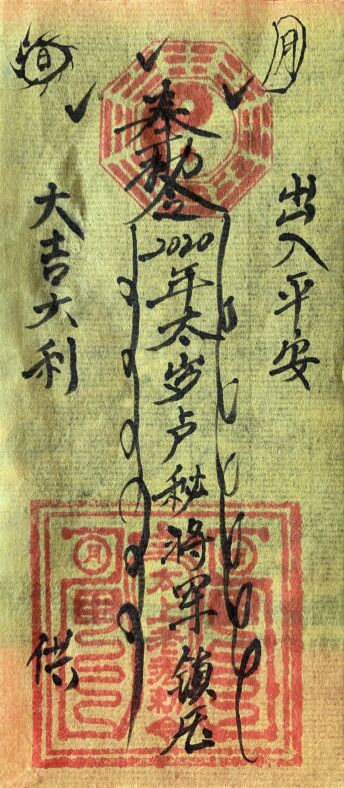 月
出入平安
奉勅令
2020年太岁卢秘将军鎮
日
大吉大利
供
太上老君
月